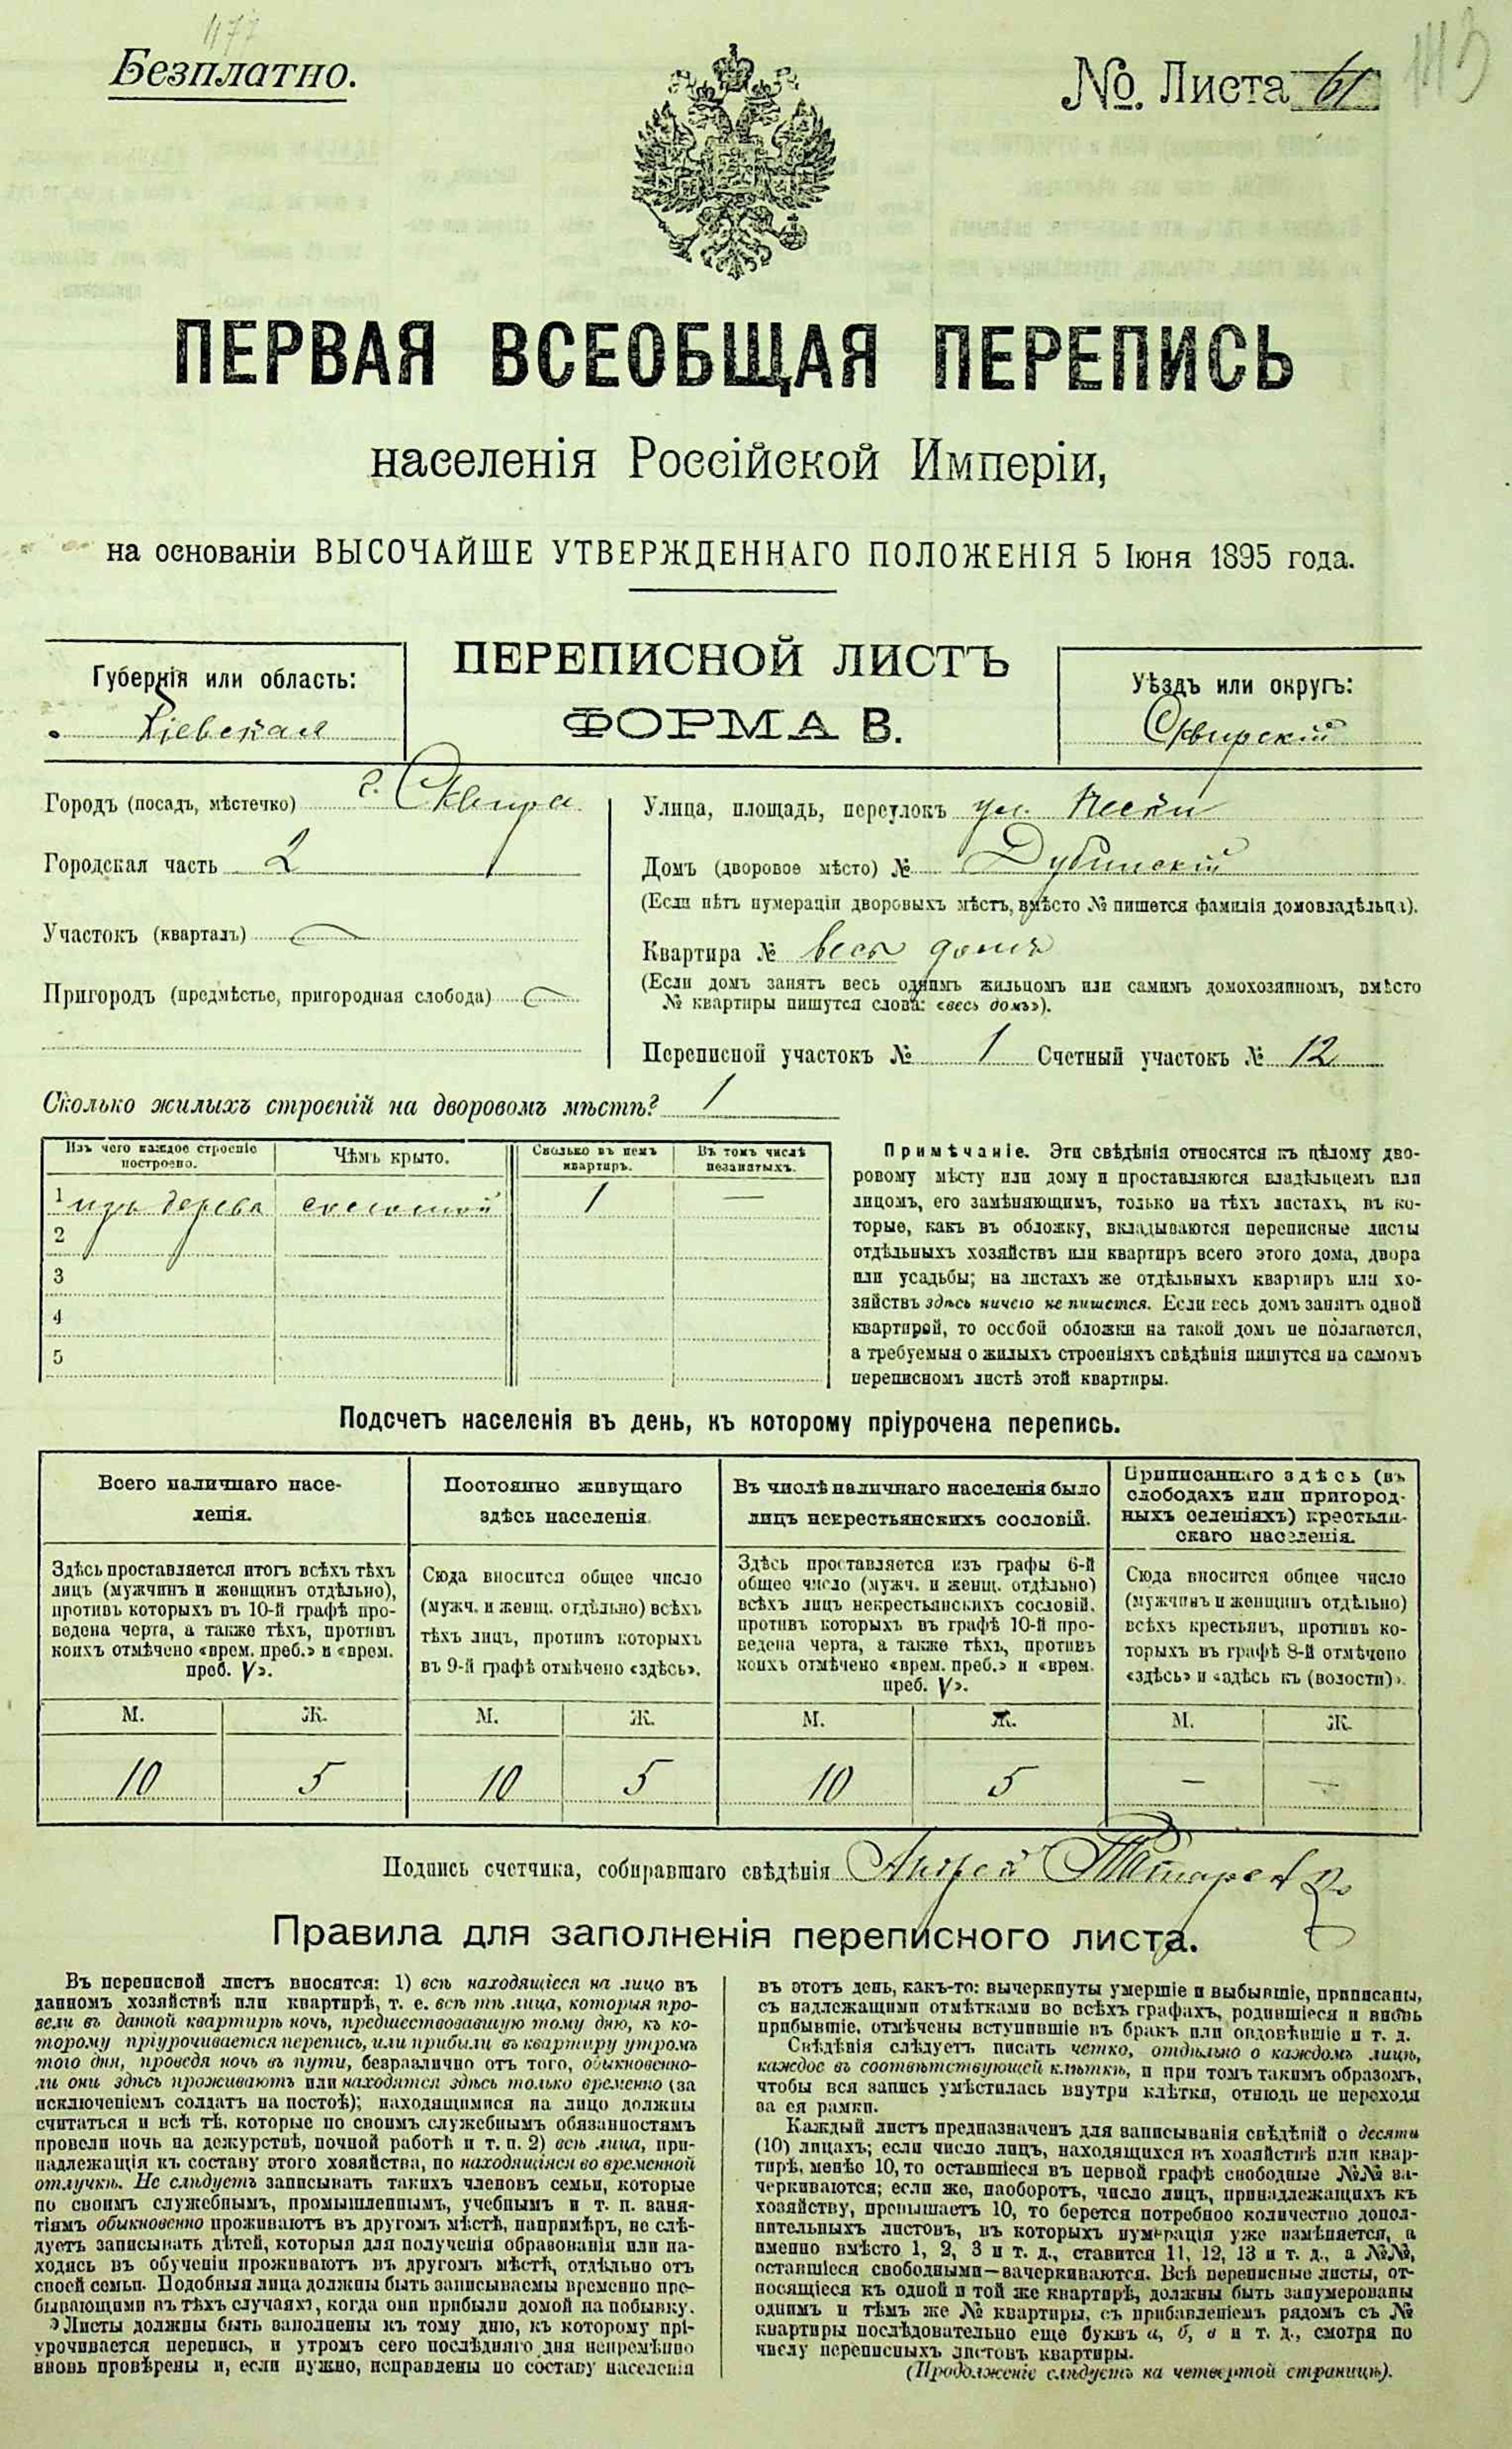 1177
Безплатно.
№. Листа 61
113
ПЕРВАЯ ВСЕОБЩАЯ ПЕРЕПИСЬ
населенія Россійской Имперіи,
на основаніи ВЫСОЧАЙШЕ УТВЕРЖДЕННАГО ПОЛОЖЕНІЯ 5 Іюня 1895 года.
Губернія или область:
Кіевская
ПЕРЕПИСНОЙ ЛИСТЪ
ФОРМА В.
Уѣздъ или округъ:
Сквирскій
Городъ (посадъ, мѣстечко) г. Сквира
Городская часть 2
Участокъ (кварталъ)
Пригородъ (предмѣстье, пригородная слобода)
Улица, площадь, переулокъ ул. Пески
Домъ (дворовое мѣсто) № Дубинскій
(Если нѣтъ нумераціи дворовыхъ мѣстъ, вмѣсто № пишется фамилія домовладѣльца).
Квартира № весь домъ
(Если домъ занятъ весь однимъ жильцомъ или самимъ домохозяиномъ, вмѣсто
№ квартиры пишутся слова: «весь домъ»).
Переписной участокъ № 1 Счетный участокъ № 12
Сколько жилыхъ строеній на дворовомъ мѣстѣ? 1
Изъ чего каждое строеніе
построено.
Чѣмъ крыто.
Сколько въ немъ
квартиръ.
Въ томъ числѣ
незанятыхъ.
1 изъ дерева соломой 1 —
2
3
4
5
Примѣчаніе. Эти свѣдѣнія относятся къ цѣлому дво-
ровому мѣсту или дому и проставляются владѣльцемъ или
лицомъ, его замѣняющимъ, только на тѣхъ листахъ, въ ко-
торые, какъ въ обложку, вкладываются переписные листы
отдѣльныхъ хозяйствъ или квартиръ всего этого дома, двора
или усадьбы; на листахъ же отдѣльныхъ квартиръ или хо-
зяйствъ здѣсь ничего не пишется. Если весь домъ занятъ одной
квартирой, то особой обложки на такой домъ не полагается,
а требуемыя о жилыхъ строеніяхъ свѣдѣнія пишутся на самомъ
переписномъ листѣ этой квартиры.
Подсчетъ населенія въ день, къ которому пріурочена перепись.
Всего наличнаго насе-
ленія.
Здѣсь проставляется итогъ всѣхъ тѣхъ
лицъ (мужчинъ и женщинъ отдѣльно),
противъ которыхъ въ 10-й графѣ про-
ведена черта, а также тѣхъ, противъ
коихъ отмѣчено «врем. преб.» и «врем.
преб. V».
Постоянно живущаго
здѣсь населенія.
Сюда вносится общее число
(мужч. и женщ. отдѣльно) всѣхъ
тѣхъ лицъ, противъ которыхъ
въ 9-й графѣ отмѣчено «здѣсь».
Въ числѣ наличнаго населенія было
лицъ некрестьянскихъ сословій.
Здѣсь проставляется изъ графы 6-й
общее число (мужч. и женщ. отдѣльно)
всѣхъ лицъ некрестьянскихъ сословій,
противъ которыхъ въ графѣ 10-й про-
ведена черта, а также тѣхъ, противъ
коихъ отмѣчено «врем. преб.» и «врем.
преб. V».
Приписаннаго здѣсь (въ
слободахъ или пригород-
ныхъ селеніяхъ) крестьян-
скаго населенія.
Сюда вносится общее число
(мужчинъ и женщинъ отдѣльно)
всѣхъ крестьянъ, противъ ко-
торыхъ въ графѣ 8-й отмѣчено
«здѣсь» и «здѣсь къ (волости)».
М. Ж. М. Ж. М. Ж. М. Ж.
10 5 10 5 10 5 — —
Подпись счетчика, собиравшаго свѣдѣнія Андрей
Правила для заполненія переписного листа.
Въ переписной листъ вносятся: 1) всѣ находящіеся на лицо въ
данномъ хозяйствѣ или квартирѣ, т. е. всѣ тѣ лица, которыя про-
вели въ данной квартирѣ ночь, предшествовавшую тому дню, къ ко-
торому пріурочивается перепись, или прибыли въ квартиру утромъ
того дня, проведя ночь въ пути, безразлично отъ того, обыкновенно-
ли они здѣсь проживаютъ или находятся здѣсь только временно (за
исключеніемъ солдатъ на постоѣ); находящимися на лицо должны
считаться и всѣ тѣ, которые по своимъ служебнымъ обязанностямъ
провели ночь на дежурствѣ, ночной работѣ и т. п. 2) всѣ лица, при-
надлежащія къ составу этого хозяйства, но находящіяся во временной
отлучкѣ. Не слѣдуетъ записывать такихъ членовъ семьи, которые
по своимъ служебнымъ, промышленнымъ, учебнымъ и т. п. заня-
тіямъ обыкновенно проживаютъ въ другомъ мѣстѣ, напримѣръ, не слѣ-
дуетъ записывать дѣтей, которыя для полученія образованія или на-
ходясь въ обученіи проживаютъ въ другомъ мѣстѣ, отдѣльно отъ
своей семьи. Подобныя лица должны быть записываемы временно пре-
бывающими въ тѣхъ случаяхъ, когда они прибыли домой на побывку.
Листы должны быть заполнены къ тому дню, къ которому прі-
урочивается перепись, и утромъ сего послѣдняго дня непремѣнно
вновь провѣрены и, если нужно, исправлены по составу населенія
въ этотъ день, какъ-то: вычеркнуты умершіе и выбывшіе, приписаны,
съ надлежащими отмѣтками во всѣхъ графахъ, родившіеся и вновь
прибывшіе, отмѣчены вступившіе въ бракъ или овдовѣвшіе и т. д.
Свѣдѣнія слѣдуетъ писать четко, отдѣльно о каждомъ лицѣ,
каждое въ соотвѣтствующей клѣткѣ, и при томъ такимъ образомъ,
чтобы вся запись умѣстилась внутри клѣтки, отнюдь не переходя
за ея рамки.
Каждый листъ предназначенъ для записыванія свѣдѣній о десяти
(10) лицахъ; если число лицъ, находящихся въ хозяйствѣ или квар-
тирѣ, менѣе 10, то оставшіеся въ первой графѣ свободные №№ за-
черкиваются; если же, наоборотъ, число лицъ, принадлежащихъ къ
хозяйству, превышаетъ 10, то берется потребное количество допол-
нительныхъ листовъ, въ которыхъ нумерація уже измѣняется, а
именно вмѣсто 1, 2, 3 и т. д., ставится 11, 12, 13 и т. д., а №№,
оставшіеся свободными—зачеркиваются. Всѣ переписные листы, от-
носящіеся къ одной и той же квартирѣ, должны быть занумерованы
однимъ и тѣмъ же № квартиры, съ прибавленіемъ рядомъ съ №
квартиры послѣдовательно еще буквъ а, б, в и т. д., смотря по
числу переписныхъ листовъ квартиры.
(Продолженіе слѣдуетъ на четвертой страницѣ).